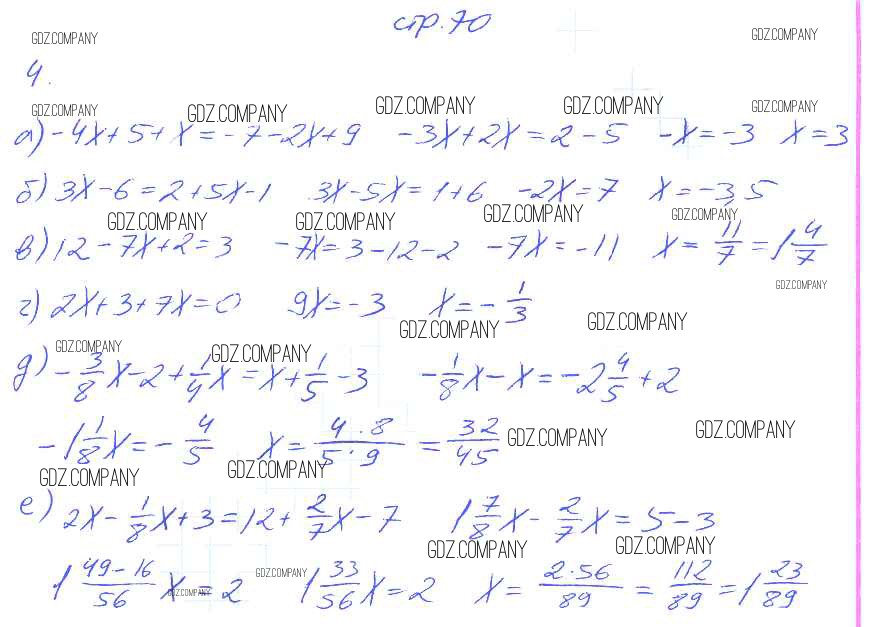 стр. 70
GDZ.COMPANY GDZ.COMPANY
4.
GDZ.COMPANY GDZ.COMPANY GDZ.COMPANY GDZ.COMPANY GDZ.COMPANY
а) -4x+5+x=-7-2x+9 -3x+2x=2-5 -x=-3 x=3
б) 3x-6=2+5x-1 3x-5x=1+6 -2x=7 x=-3,5
GDZ.COMPANY GDZ.COMPANY GDZ.COMPANY GDZ.COMPANY
в) 12-7x+2=3 -7x=3-12-2 -7x=-11 x=11/7=1 4/7
GDZ.COMPANY
г) 2x+3+7x=0 9x=-3 x=-1/3
GDZ.COMPANY GDZ.COMPANY
GDZ.COMPANY GDZ.COMPANY
д) -3/8x-2+1/4x=x+1/5-3 -1/8x-x=-2 4/5+2
-1 1/8x=-4/5 x=4·8/5·9=32/45 GDZ.COMPANY GDZ.COMPANY
GDZ.COMPANY GDZ.COMPANY
е) 2x-1/8x+3=12+2/7x-7 1 7/8x-2/7x=5-3
GDZ.COMPANY GDZ.COMPANY
1 49-16/56x=2 1 33/56x=2 x=2·56/89=112/89=1 23/89
GDZ.COMPANY GDZ.COMPANY